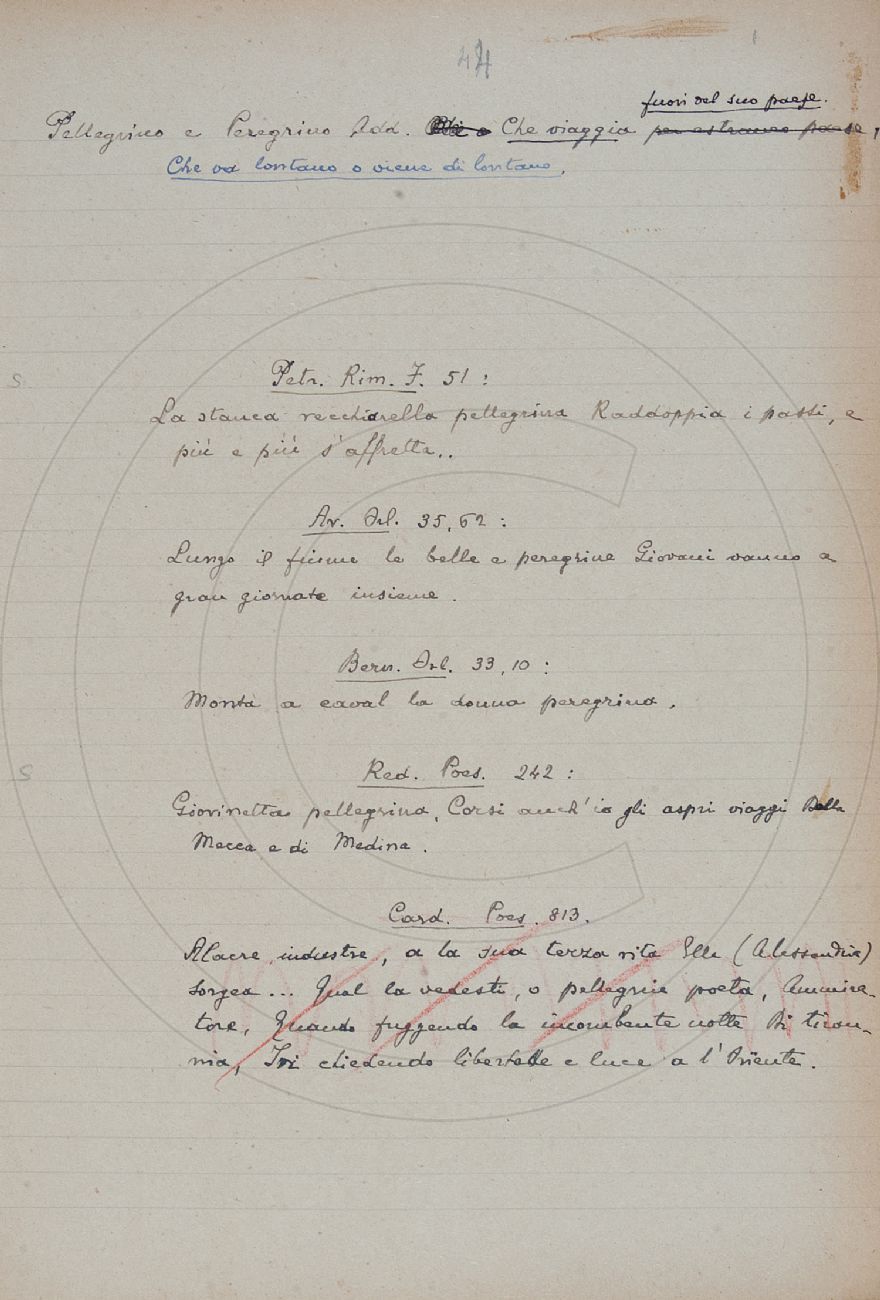 44
fuori del suo paese.
Pellegrino e Peregrino Add. Che viaggia per estraneo paese,
Che va lontano o viene di lontano.
S
Petr. Rim. F. 51 :
La stanca vecchiarella pellegrina Raddoppia i passi, e
più e più s'affretta..
Ar. Orl. 35, 62 :
Lungo il fiume le belle e peregrine Giovani vanno a
gran giornate insieme.
Bern. Orl. 33, 10 :
Monta a caval la donna peregrina.
S
Red. Poes. 242 :
Giovinetta pellegrina, Corsi anch'io gli aspri viaggi Della
Mecca e di Medina.
Card. Poes. 813.
Alacre, industre, a la sua terza vita Elle (Alessandria)
Sorgea ... Qual la vedesti, o pellegrin poeta, Ammira-
tore, Quando fuggendo la incombente notte Di tiran-
nia, Ivi chiedendo libertade e luce a l'Oriente.